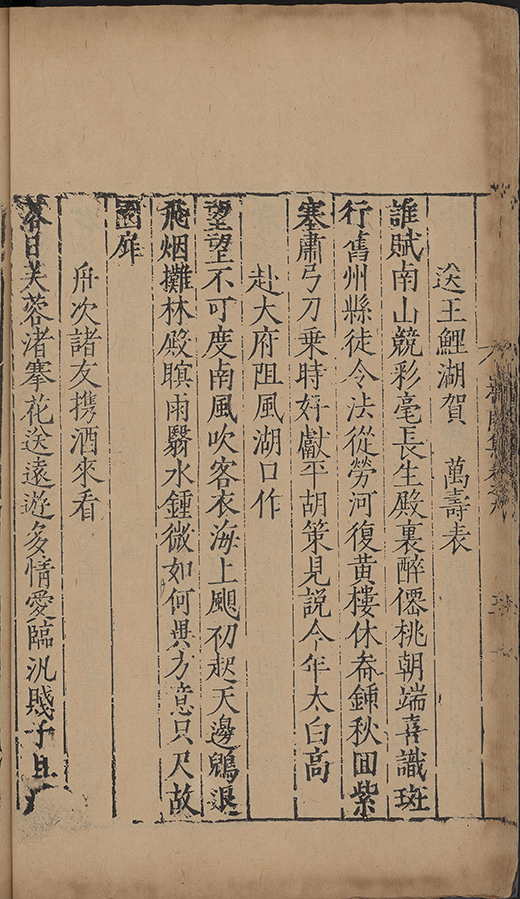 送王鯉湖賀　萬壽表
誰賦南山競彩毫長生殿裏醉僊桃朝端喜識斑
行舊州縣徒令法從勞河復黃樓休畚鍤秋囬紫
塞肅弓刀乗時好獻平胡策見說今年太白高
赴大府阻風湖口作
望望不可度南風吹客衣海上颶初起天邊鷁退
飛烟攤林殿暝雨翳水鍾微如何異方意只尺故
園扉
舟次諸友携酒來看
落日芙蓉渚搴花送遠遊多情愛臨汎賤子且